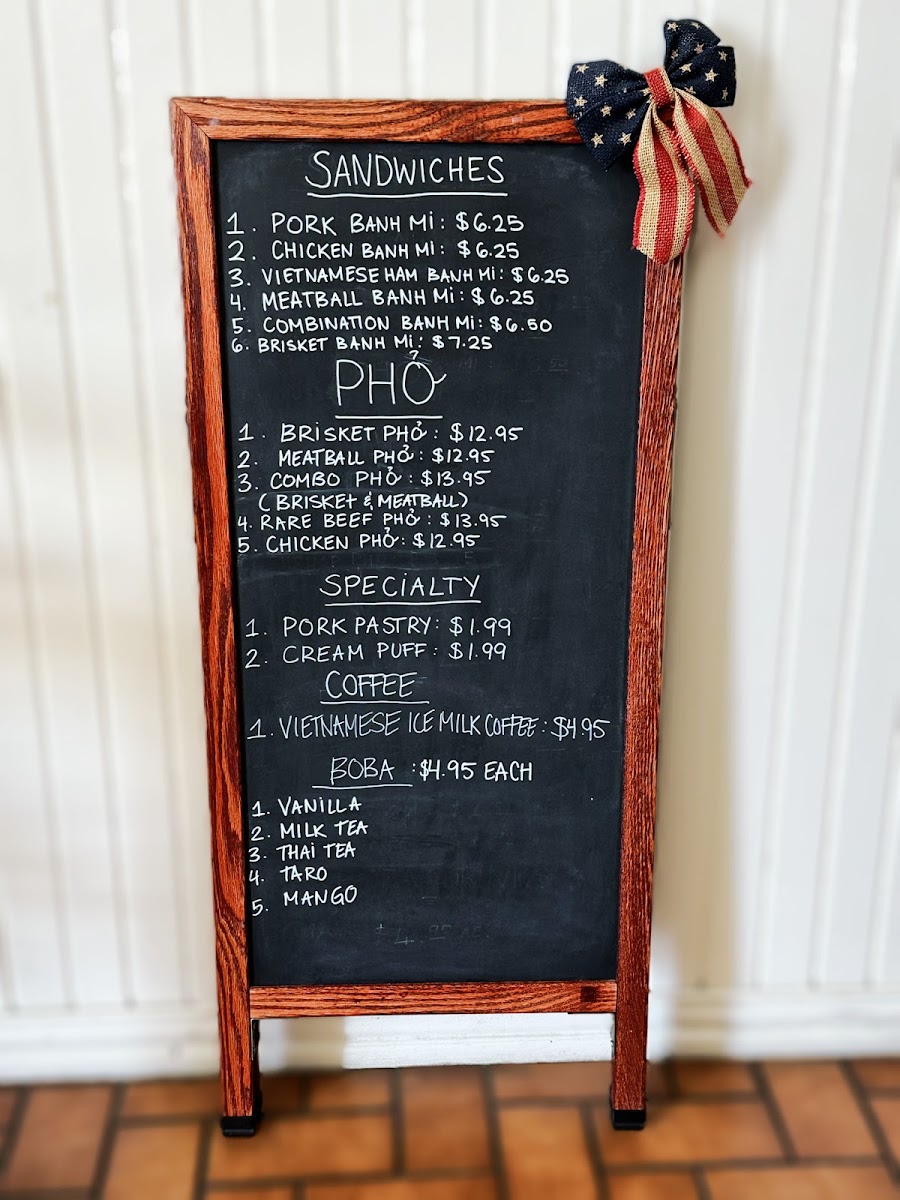 SANDWICHES
1. PORK BANH Mi: $6.25
2. CHICKEN BANH Mi: $6.25
3. VIETNAMESE HAM BANH Mi: $6.25
4. MEATBALL BANH Mi: $6.25
5. COMBINATION BANH Mi: $6.50
6. BRISKET BANH Mi: $7.25
PHỞ
1. BRiSKET PHỞ: $12.95
2. MEATBALL PHỞ: $12.95
3. COMBO PHỞ: $13.95
(BRISKEt & MEATBALL)
4. RARE BEEF PHỞ: $13.95
5. CHICKEN PHỞ: $12.95
SPECiALTY
1. PORK PASTRY: $1.99
2. CREAM PUFF: $1.99
COFFEE
1. VIETNAMESE ICE MILK COFFEE: $4.95
BOBA: $4.95 EACH
1. VANiLLA
2. MILK TEA
3. THAi TEA
4. TARO
5. MANGO